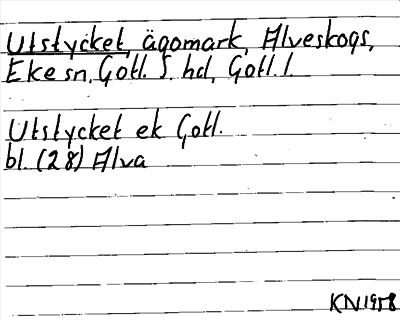 Utstycket, ägomark, Alveskogs,
Eke sn, Gotl. S. hd, Gotl. l.
Utstycket ek Gotl.
bl. (28) Alva
KN 1958